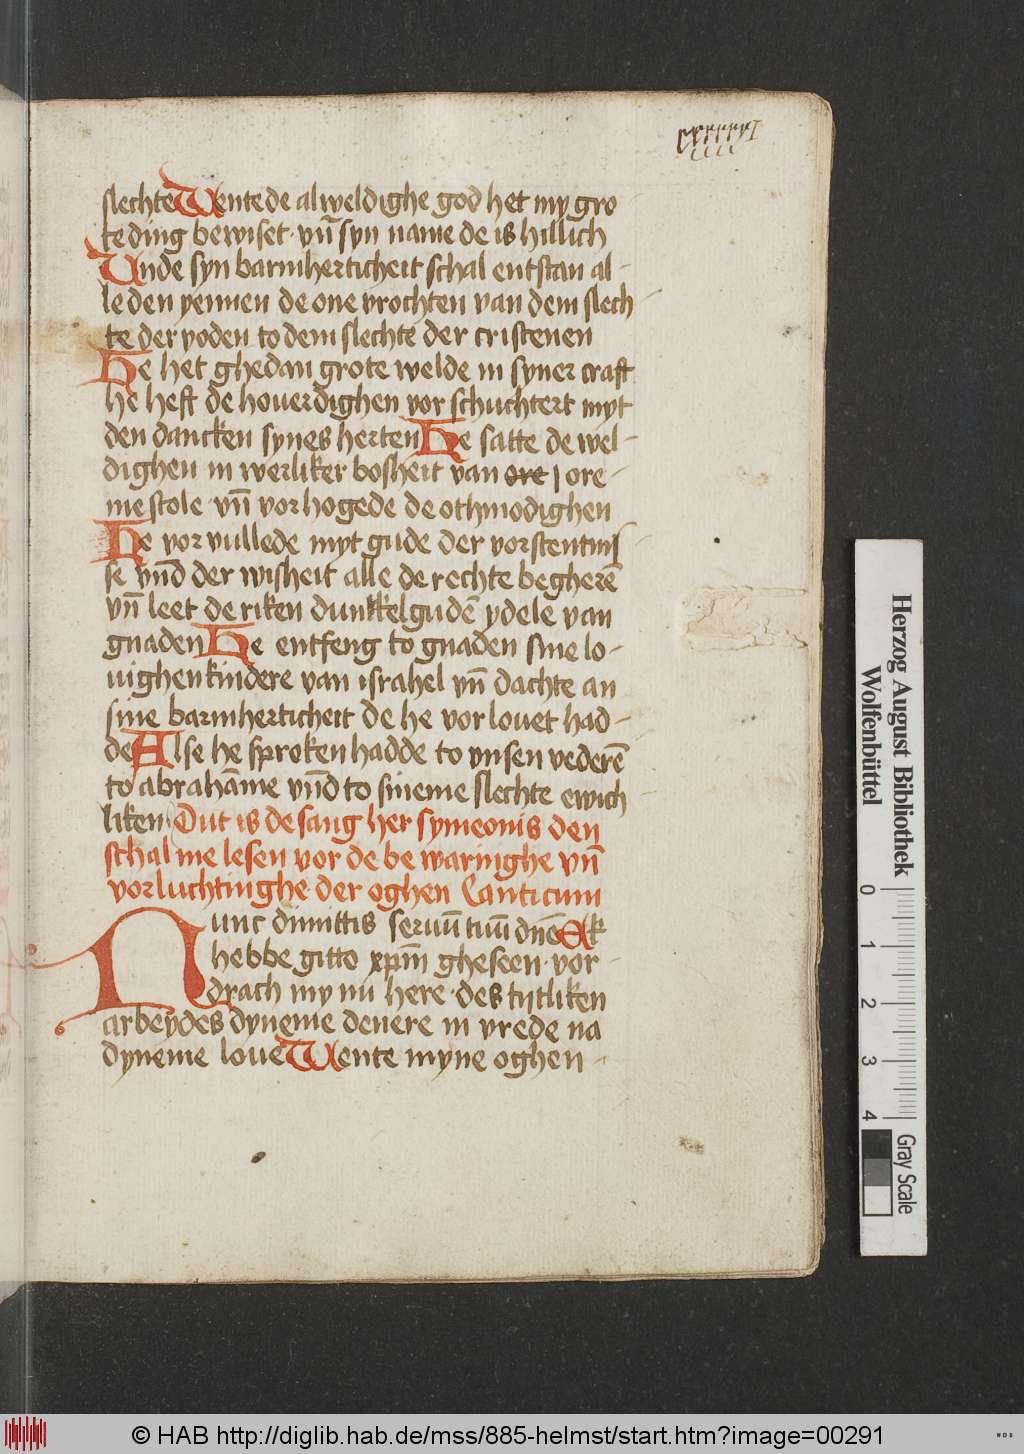 slechte Wente de alweldighe god het my gro
te ding bewiset · vn̄ syn name de is hillich
Vnde syn barmherticheit schal entstan al-
le den yennen de one vrochten van dem slech-
te der yoden to dem slechte der cristenen
He het ghedan grote welde in syner craft
he heft de houerdighen vor schuchtert myt
den dancken synes herten He satte de wel-
dighen in werliker bosheit van ore-
me stole · vn̄ vorhogede de othmodighen
He vor vullede myt gude der vorstentnis
se vn̄d der wisheit alle de rechte begherē
vn̄ leet de riken dunkkelgudē ydele van
gnaden He entfeng to gnaden sine lo-
uighen kindere van israhel vn̄ dachte an
sine barmherticheit de he vor louet had-
de Alse he sproken hadde to vnsen vederē
to abrahāme vn̄d to sineme slechte ewich-
liken Dut is de sang her symeonis den
schal me lesen vor de bewaringhe vn̄
vorluchtinghe der oghen Canticum
Nunc dimittis seruū tuū dn̄e Ek
hebbe gitto xp̄m gheseen · vor-
drach my nu here · des tijtliken
arbeydes dyneme denere in vrede na
dyneme loue Wente myne oghen-
Herzog August Bibliothek
Wolfenbüttel
0 1 2 3 4
Gray Scale
© HAB http://diglib.hab.de/mss/885-helmst/start.htm?image=00291